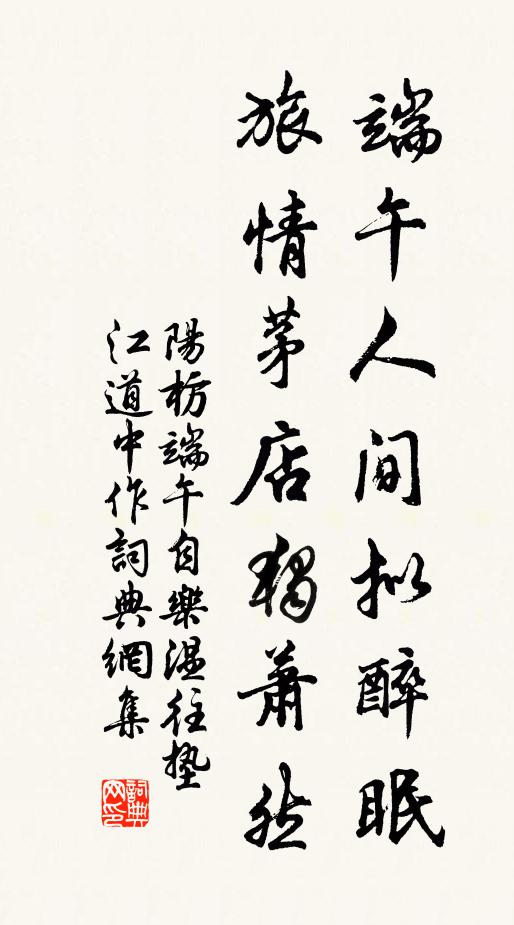 端午人间拟醉眠
旅情茅店独萧然
陽枋端午自樂温往墊
江道中作詞典網集
詞典网印